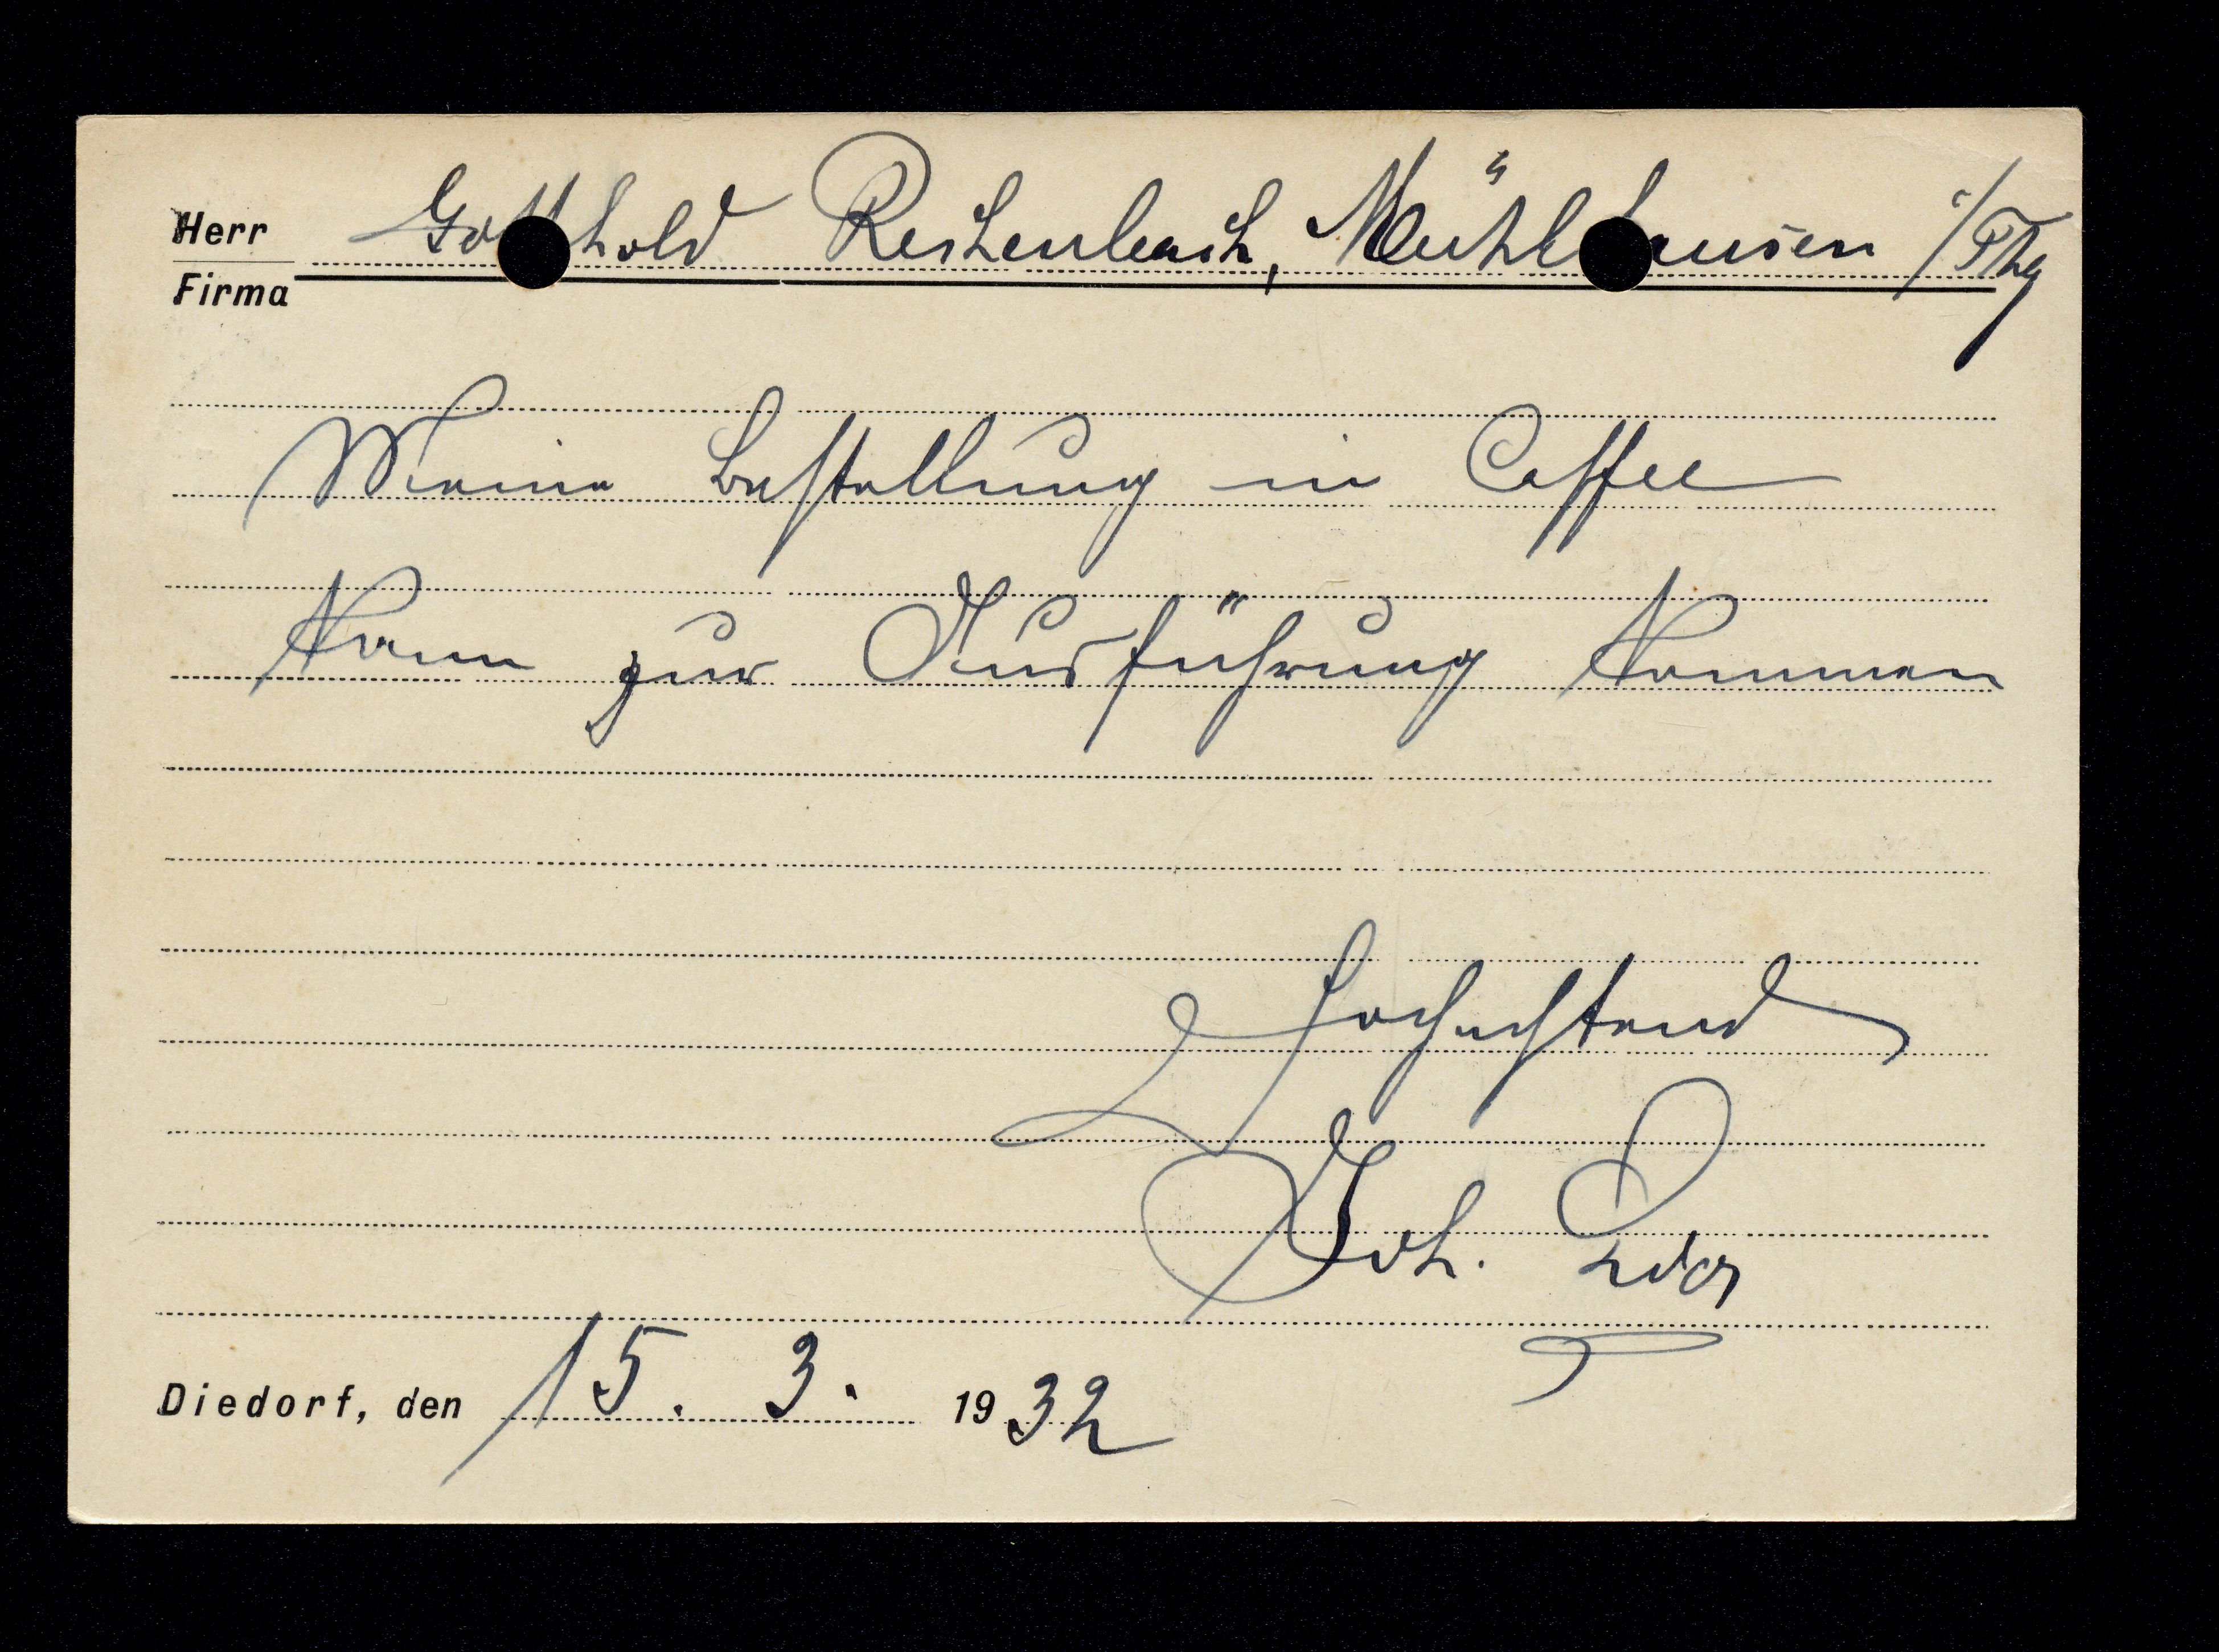 Herr Gotthold Reichenbach, Mühlhausen i/Thg
Firma
Meine Bestellung in Caffee
kann zur Ausführung kommen
Hochachtend
Joh.
Diedorf, den 15. 3. 1932